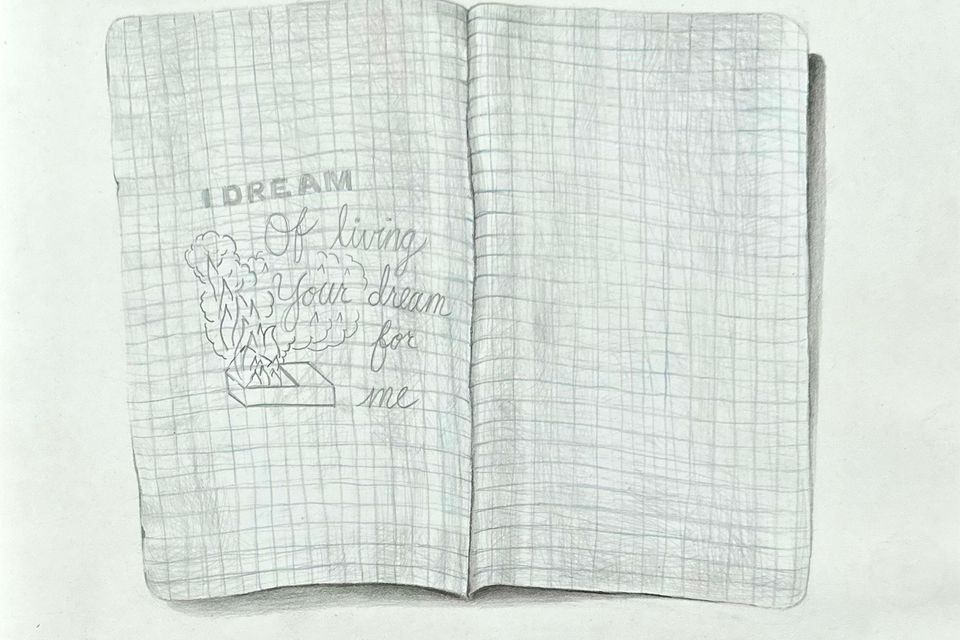 I DREAM
Of living
Your dream
for
me